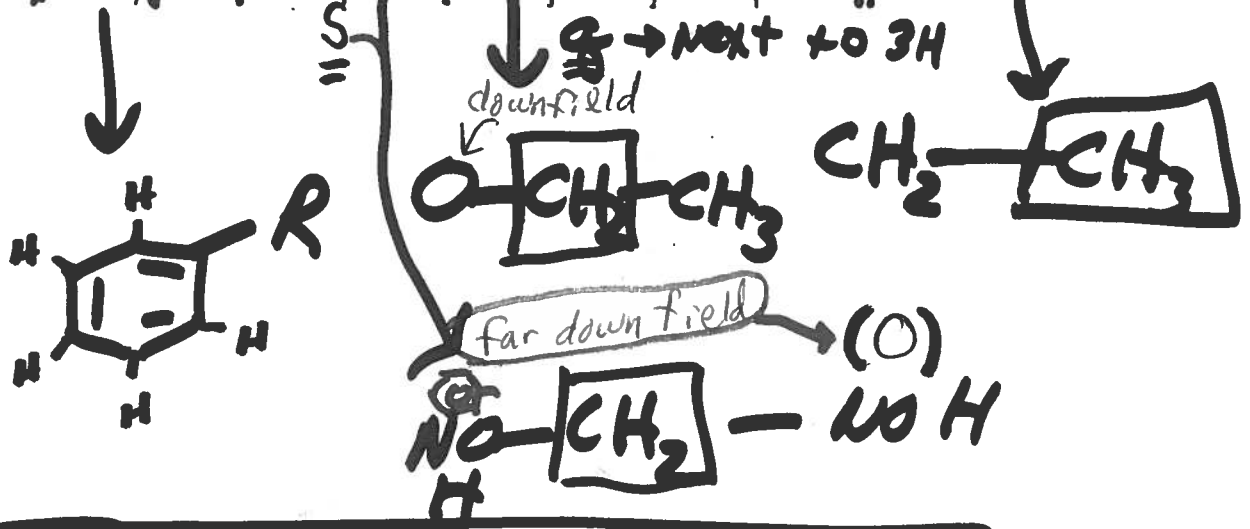 S
q → Next to 3H
downfield
O-CH2-CH3
CH2-CH3
H
R
H
H
H
H
far down field
(O)
NO-CH2 - NO H
H